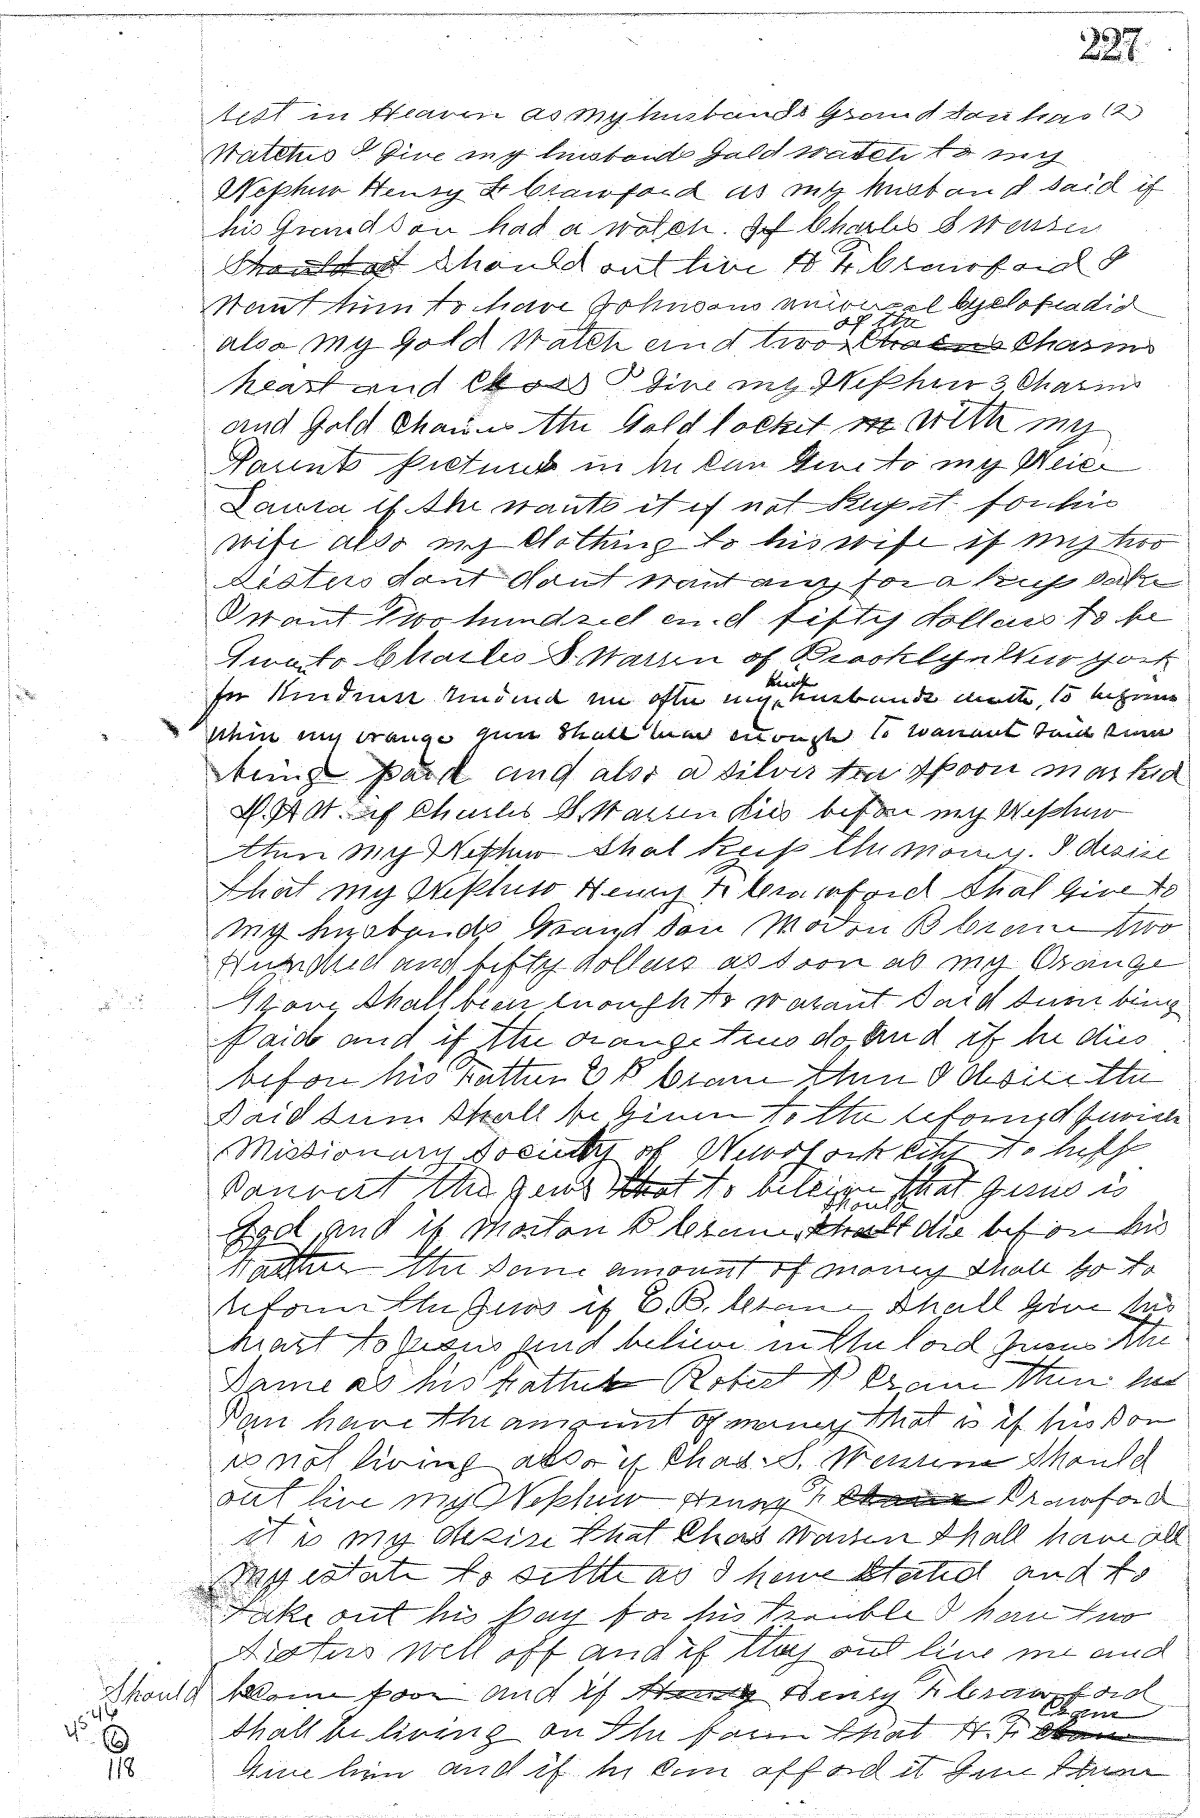 227
rest in Heaven as my husbands Grand son has (2)
Watches I Give my husbands Gold watch to my
Nephew Henry F Crawford as my husband said if
his Grandson had a watch. If Charles S Warren
should out live H F Crawford I
want him to have Johnsons universal Cyclopeadid
of the
also my Gold Watch and two Chains Charms
heart and Cross I Give my Nephew 3 Charms
and Gold Chains the Gold locket with my
Parents pictures in he can Give to my Neice
Laura if she wants it if not Keep it for his
wife also my Clothing to his wife if my two
sisters dont dont want any for a keep sake
I want Two hundred and fifty dollars to be
Given to Charles S. Warren of Brooklyn New York
for Kindness rendered me after my husbands death, to
when my orange grove shall bear enough to warrant said sum
being paid and also a silver tea spoon marked
H. W. if Charles S. Warren dies before my Nephew
then my Nephew shal keep the money. I desire
that my Nephew Henry F Crawford shal Give to
my husbands Grand son Morton B Crane two
Hundred and fifty dollars as soon as my Orange
Grove shall bear enough to warant said sum being
paid and if the orange trees do, and if he dies
before his Father E B Crane then I desire the
said sum shall be Given to the reformed Jewish
Missionary Society of New York City to help
Convert the Jews that to beleive that Jesus is
should
God, and if Morton B Crane, shall die before his
Father the same amount of money shall Go to
reform the Jews if E. B. Crane shall Give his
heart to Jesus and believe in the lord Jesus the
Same as his Father Robert P Crane then he
Can have the amount of money that is if his son
is not living also if Chas. S. Warren should
out live my Nephew Henry F Crane Crawford
it is my desire that Chas Warren shall have all
my estate to settle as I have stated and to
take out his pay for his trouble I have two
sisters well off and if they out live me and
Should become poor and if Henry Henry F Crawford
45-46
shall be living on the farm that H. F
6
118
Give him and if he can afford it Give them